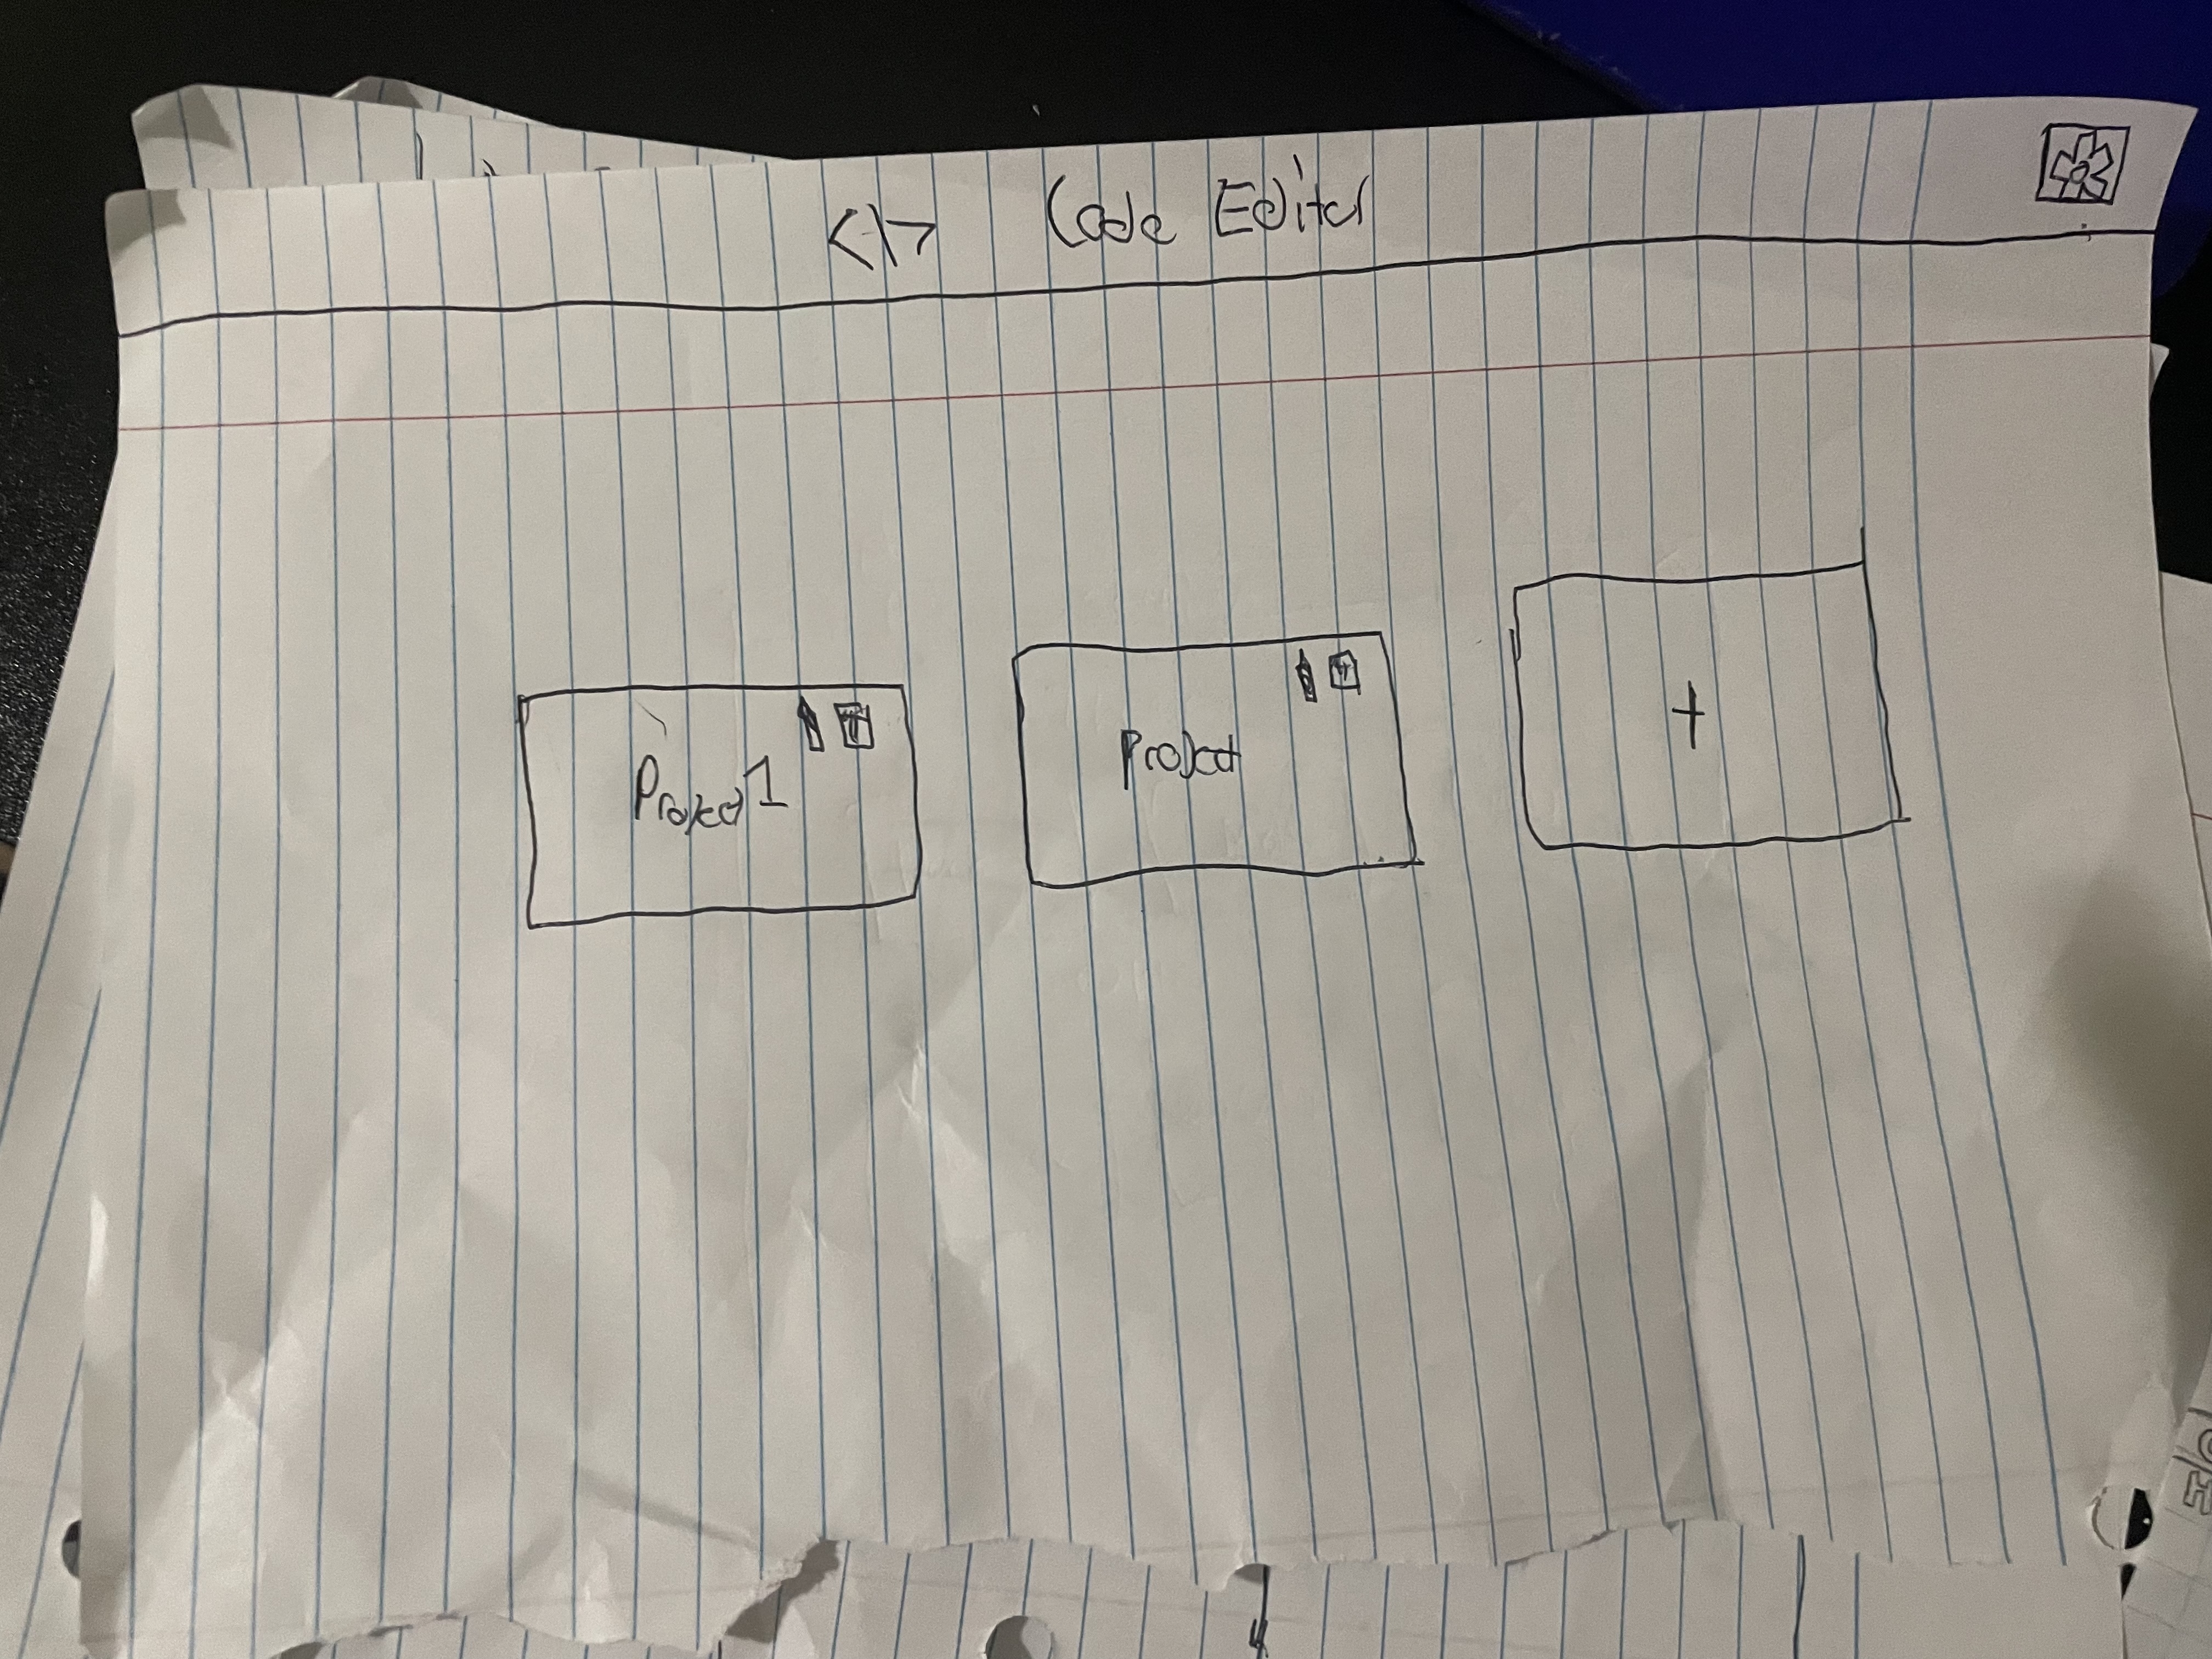 <\> Code Editor
Project 1
Project
+